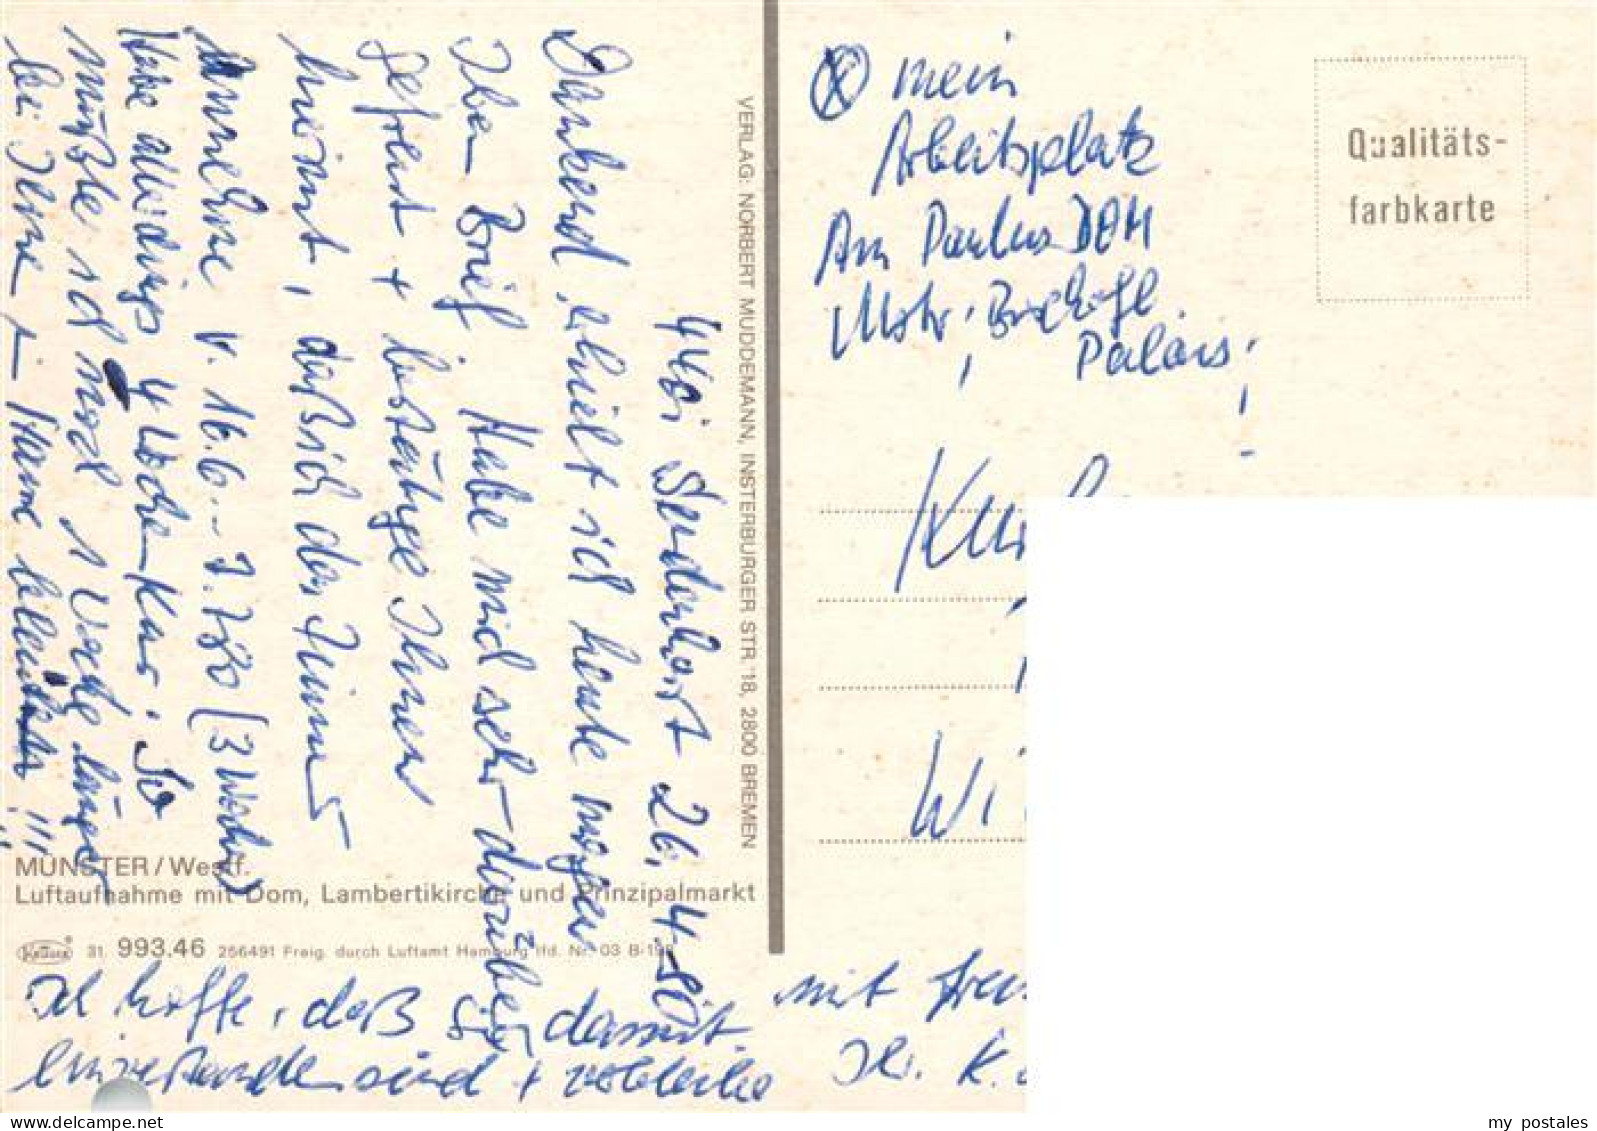 4401 Sendenhorst 26. 4. 80
Dankend, erhielt ich heute morgen
Ihren Brief. Habe mich sehr darüber
gefreut + bestätige Ihnen
hiermit, daß ich das Zimmer
v. 16.6. - 7.7.80 (3 Wochen)
Habe allerdings 4 Wochen Kur. So
müßte ich noch 1 Woche länger
bei Ihnen
Ich hoffe, daß Sie damit
einverstanden sind + verbleibe
mit freu
Ihr. K.
VERLAG: NORBERT MUDDEMANN, INSTERBURGER STR. 18, 2800 BREMEN
MÜNSTER / Westf.
Luftaufnahme mit Dom, Lambertikirche und Prinzipalmarkt
Krüger 31 993.46 256491 Freig. durch Luftamt Hamburg lfd. Nr. 03 B-199
mein
Arbeitsplatz
Am Paulus DOM
Mstr, Bischöfl.
Palais,
Qualitäts-
farbkarte
Kur
Wi
my postales